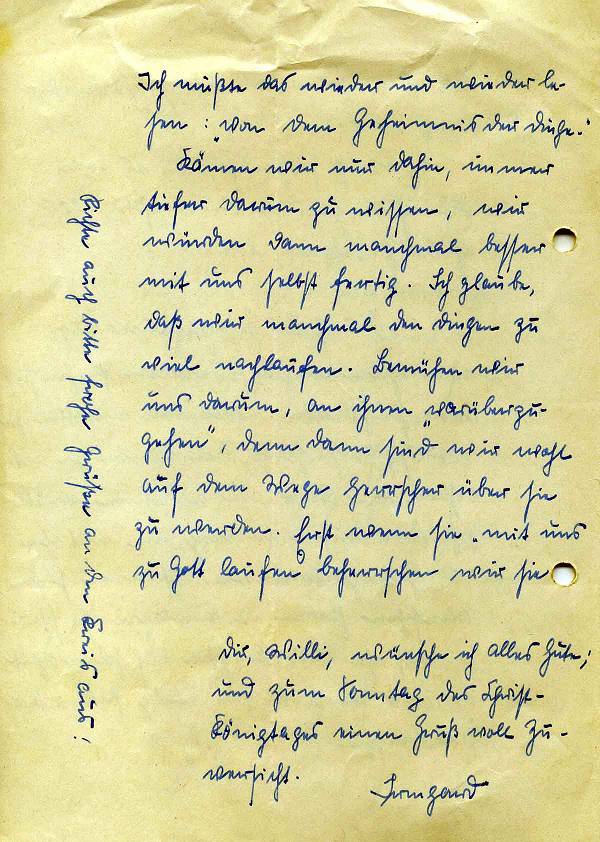 Ich müßte das wieder und wieder le-
sen: "von dem Geheimnis der Dinge."
Kämen wir nur dahin, immer
tiefer darum zu wissen, wir
würden dann manchmal besser
mit uns selbst fertig. Ich glaube,
daß wir manchmal den Dingen zu
viel nachlaufen. Bemühen wir
uns darum, an ihnen "vorüberzu-
gehen", denn dann sind wir wohl
auf dem Wege Herrscher über sie
zu werden. Erst wenn sie "mit uns
zu Gott laufen" beherrschen wir sie
Dir, Willi, wünsche ich alles Gute;
und zum Sonntag des Christ-
Königtages einen Gruß voll Zu-
versicht.
Irmgard
Richte auch bitte frohe Grüße an den Kreis aus!